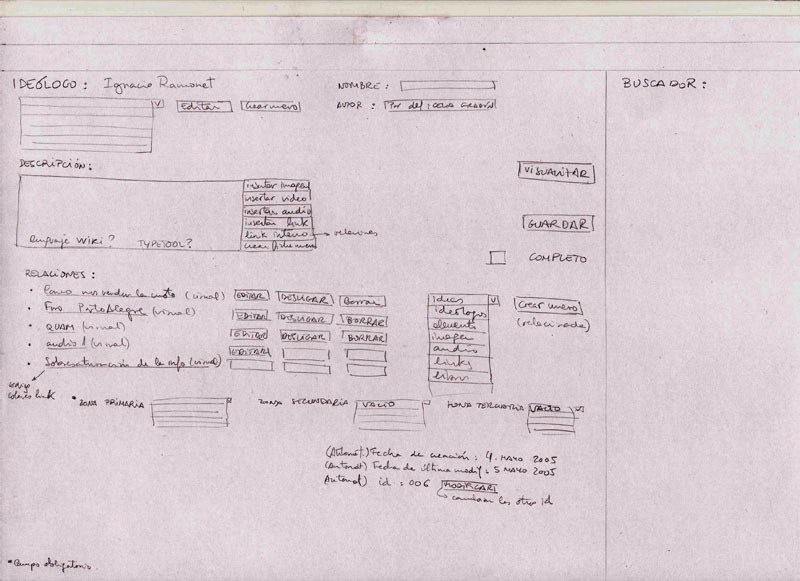 IDEÓLOGO : Ignacio Ramonet
NOMBRE :
BUSCADOR :
V Editar Crear nuevo
AUTOR : Por def :
DESCRIPCIÓN :
insertar imagen
insertar video
insertar audio
insertar link
link interno → relaciones
crear
lenguaje WIKI ? TYPETOOL ?
VISUALITAR
GUARDAR
COMPLETO
RELACIONES :
• Como nos venden la moto (visual) EDITAR DESLIGAR Borrar
• Foro PortoAlegre (visual) EDITAR DESLIGAR BORRAR
• QUAM (visual) EDITAR DESLIGAR BORRAR
• audio 1 (visual) EDITAR
• Sobresaturación de la info (visual)
ideas V
ideólogos
elementos
imagen
audio
links
libros
Crear nuevo
(relacionada)
código
colores link
* ZONA PRIMARIA
ZONA SECUNDARIA VACIO
ZONA TERCIARIA VACIO
(Automat.) Fecha de creación : 4. MAYO 2005
(Automat) Fecha de última modif : 5 MAYO 2005
Automat) id : 006 MODIFICAR
→ cambiar los otro id
* Campo obligatorio